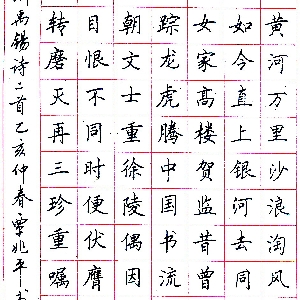 黄河万里沙浪淘风
如今直上银河去同
女家高楼贺监昔曾
踪龙虎腾中国书流
朝文士重徐陵偶因
目恨不同时便伏膺
转磨灭再三珍重嘱
禹锡诗二首乙亥仲春覃兆平